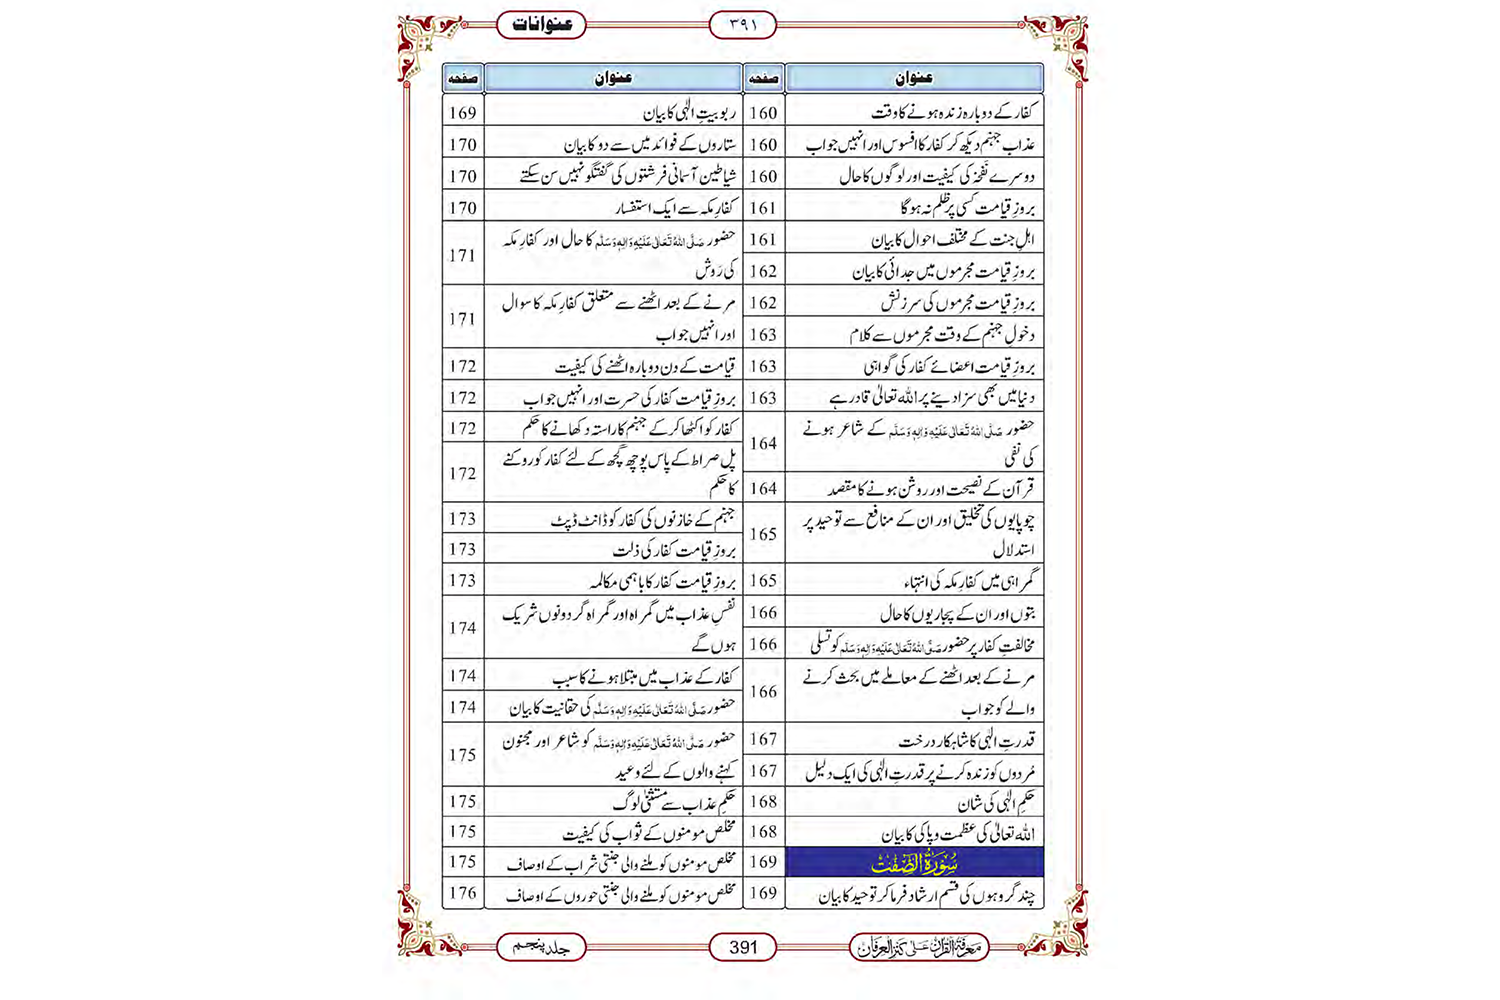 عنوانات
۳۹۱
عنوان صفحہ
کفار کے دوبارہ زندہ ہونے کا وقت 160
عذابِ جہنم دیکھ کر کفار کا افسوس اور انہیں جواب 160
دوسرے نَفْخَہ کی کیفیت اور لوگوں کا حال 160
بروزِ قیامت کسی پر ظلم نہ ہوگا 161
اہلِ جنت کے مختلف احوال کا بیان 161
بروزِ قیامت مجرموں میں جدائی کا بیان 162
بروزِ قیامت مجرموں کی سرزنش 162
دخولِ جہنم کے وقت مجرموں سے کلام 163
بروزِ قیامت اعضائے کفار کی گواہی 163
دنیا میں بھی سزا دینے پر اللہ تعالیٰ قادر ہے 163
حضور صَلَّی اللہُ تَعَالٰی عَلَیْہِ وَاٰلِہٖ وَسَلَّم کے شاعر ہونے
کی نفی 164
قرآن کے نصیحت اور روشن ہونے کا مقصد 164
چوپایوں کی تخلیق اور ان کے منافع سے توحید پر
استدلال 165
گمراہی میں کفارِ مکہ کی انتہاء 165
بتوں اور ان کے پجاریوں کا حال 166
مخالفتِ کفار پر حضور صَلَّی اللہُ تَعَالٰی عَلَیْہِ وَاٰلِہٖ وَسَلَّم کو تسلی 166
مرنے کے بعد اٹھنے کے معاملے میں بحث کرنے
والے کو جواب 166
قدرتِ الٰہی کا شاہکار درخت 167
مُردوں کو زندہ کرنے پر قدرتِ الٰہی کی ایک دلیل 167
حکمِ الٰہی کی شان 168
اللہ تعالیٰ کی عظمت و پاکی کا بیان 168
سُوْرَۃُ الصّٰفّٰت 169
چند گروہوں کی قسم ارشاد فرما کر توحید کا بیان 169
عنوان صفحہ
ربوبیتِ الٰہی کا بیان 169
ستاروں کے فوائد میں سے دو کا بیان 170
شیاطین آسمانی فرشتوں کی گفتگو نہیں سن سکتے 170
کفارِ مکہ سے ایک استفسار 170
حضور صَلَّی اللہُ تَعَالٰی عَلَیْہِ وَاٰلِہٖ وَسَلَّم کا حال اور کفارِ مکہ
کی رَوِش 171
مرنے کے بعد اٹھنے سے متعلق کفارِ مکہ کا سوال
اور انہیں جواب 171
قیامت کے دن دوبارہ اٹھنے کی کیفیت 172
بروزِ قیامت کفار کی حسرت اور انہیں جواب 172
کفار کو اکٹھا کر کے جہنم کا راستہ دکھانے کا حکم 172
پل صراط کے پاس پوچھ گچھ کے لئے کفار کو روکنے
کا حکم 172
جہنم کے خازنوں کی کفار کو ڈانٹ ڈپٹ 173
بروزِ قیامت کفار کی ذلت 173
بروزِ قیامت کفار کا باہمی مکالمہ 173
نفسِ عذاب میں گمراہ اور گمراہ گر دونوں شریک
ہوں گے 174
کفار کے عذاب میں مبتلا ہونے کا سبب 174
حضور صَلَّی اللہُ تَعَالٰی عَلَیْہِ وَاٰلِہٖ وَسَلَّم کی حقانیت کا بیان 174
حضور صَلَّی اللہُ تَعَالٰی عَلَیْہِ وَاٰلِہٖ وَسَلَّم کو شاعر اور مجنون
کہنے والوں کے لئے وعید 175
حکمِ عذاب سے مستثنیٰ لوگ 175
مخلص مومنوں کے ثواب کی کیفیت 175
مخلص مومنوں کو ملنے والی جنتی شراب کے اوصاف 175
مخلص مومنوں کو ملنے والی جنتی حوروں کے اوصاف 176
معرفۃ القرآن علی کنز العرفان
391
جلد پنجم